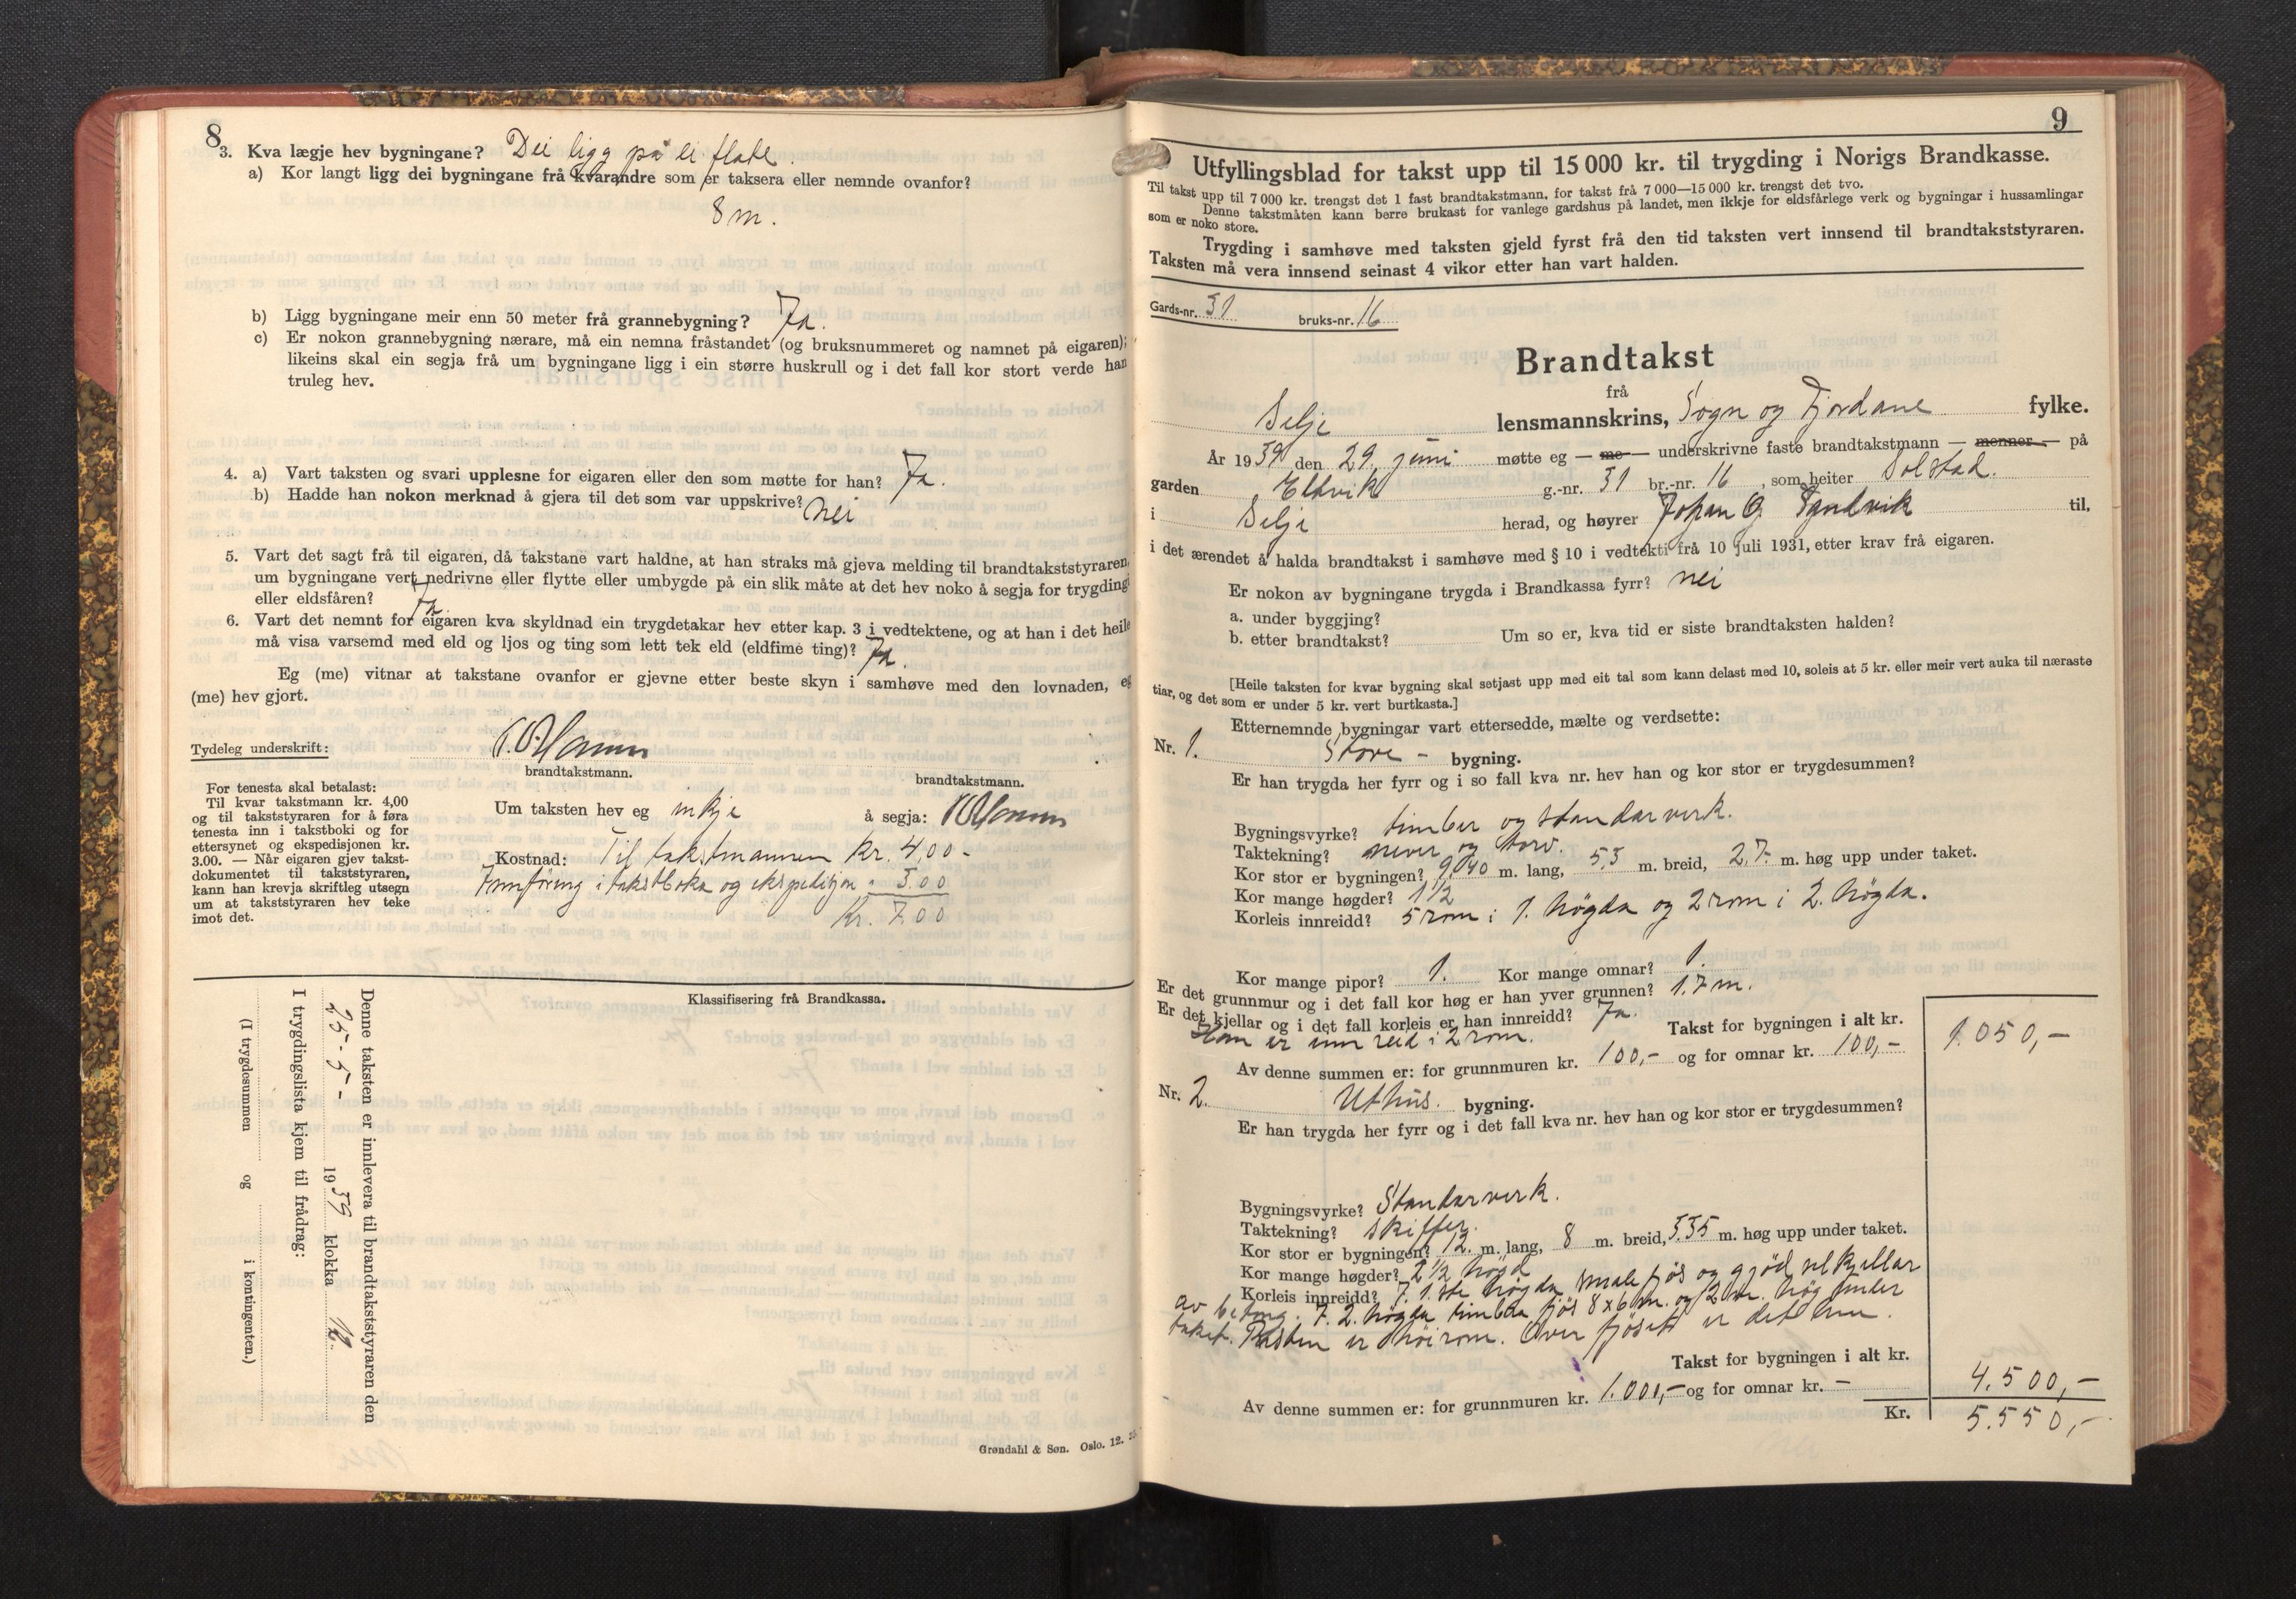 8
3. Kva lægje hev bygningane? Dei ligg på ei flate.
a) Kor langt ligg dei bygningane frå kvarandre som er taksera eller nemnde ovanfor?
8 m.
b) Ligg bygningane meir enn 50 meter frå grannebygning? Ja.
c) Er nokon grannebygning nærare, må ein nemna fråstandet (og bruksnummeret og namnet på eigaren);
likeins skal ein segja frå um bygningane ligg i ein større huskrull og i det fall kor stort verde han
truleg hev.
4. a) Vart taksten og svari upplesne for eigaren eller den som møtte for han? Ja.
b) Hadde han nokon merknad å gjera til det som var uppskrive? Nei
5. Vart det sagt frå til eigaren, då takstane vart haldne, at han straks må gjeva melding til brandtakststyraren,
um bygningane vert nedrivne eller flytte eller umbygde på ein slik måte at det hev noko å segja for trygding
eller eldsfåren? Ja
6. Vart det nemnt for eigaren kva skyldnad ein trygdetakar hev etter kap. 3 i vedtektene, og at han i det heile
må visa varsemd med eld og ljos og ting som lett tek eld (eldfime ting)? Ja.
Eg (me) vitnar at takstane ovanfor er gjevne etter beste skyn i samhøve med den lovnaden, eg
(me) hev gjort.
Tydeleg underskrift:
brandtakstmann. brandtakstmann.
For tenesta skal betalast:
Til kvar takstmann kr. 4,00
og til takststyraren for å føra
tenesta inn i takstboki og for
ettersynet og ekspedisjonen kr.
3.00. — Når eigaren gjev takst-
dokumentet til takststyraren,
kann han krevja skriftleg utsegn
um at takststyraren hev teke
imot det.
Um taksten hev eg inkje å segja:
Kostnad: Til takstmannen Kr. 4.00 -
Innföring i takstboka og ekspedisjon " 3.00
Kr. 7.00
Klassifisering frå Brandkassa.
Denne taksten er innlevera til brandtakststyraren den
25 - 5 - 1939 klokka 12.
I trygdingslista kjem til frådrag:
(I trygdesummen og i kontingenten.)
Grøndahl & Søn. Oslo. 12.
9
Utfyllingsblad for takst upp til 15 000 kr. til trygding i Norigs Brandkasse.
Til takst upp til 7 000 kr. trengst det 1 fast brandtakstmann, for takst frå 7 000—15 000 kr. trengst det tvo.
Denne takstmåten kann berre brukast for vanlege gardshus på landet, men ikkje for eldsfårlege verk og bygningar i hussamlingar
som er noko store.
Trygding i samhøve med taksten gjeld fyrst frå den tid taksten vert innsend til brandtakststyraren.
Taksten må vera innsend seinast 4 vikor etter han vart halden.
Gards-nr. 31 bruks-nr. 16
Brandtakst
frå
Selje lensmannskrins, Sogn og Fjordane fylke.
År 1939 den 29. juni møtte eg — me — underskrivne faste brandtakstmann — menner — på
garden Eltvik g.-nr. 31 br.-nr. 16, som heiter Solstad.
i Selje herad, og høyrer Johan O Sandvik til,
i det ærendet å halda brandtakst i samhøve med § 10 i vedtekti frå 10 juli 1931, etter krav frå eigaren.
Er nokon av bygningane trygda i Brandkassa fyrr? nei
a. under byggjing?
b. etter brandtakst? Um so er, kva tid er siste brandtaksten halden?
[Heile taksten for kvar bygning skal setjast upp med eit tal som kann delast med 10, soleis at 5 kr. eller meir vert auka til næraste
tiar, og det som er under 5 kr. vert burtkasta.]
Etternemnde bygningar vart ettersedde, mælte og verdsette:
Nr. 1. Stove - bygning.
Er han trygda her fyrr og i so fall kva nr. hev han og kor stor er trygdesummen?
Bygningsvyrke? timber og standarverk.
Taktekning? never og torv.
Kor stor er bygningen? 9.40 m. lang, 5.3 m. breid, 2.7 - m. høg upp under taket.
Kor mange høgder? 1 1/2
Korleis innreidd? 5 rom i 1. högda og 2 rom i 2. högda.
Kor mange pipor? 1. Kor mange omnar? 1.
Er det grunnmur og i det fall kor høg er han yver grunnen? 1.7 m.
Er det kjellar og i det fall korleis er han innreidd? Ja.
Han er innreid i 2 rom. Takst for bygningen i alt kr. 1.050,-
Av denne summen er: for grunnmuren kr. 100,- og for omnar kr. 100,-
Nr. 2. Uthus. bygning.
Er han trygda her fyrr og i det fall kva nr. hev han og kor stor er trygdesummen?
Bygningsvyrke? Standarverk.
Taktekning? skiffer.
Kor stor er bygningen? 12. m. lang, 8 m. breid, 3.35 m. høg upp under taket.
Kor mange høgder? 2 1/2 högd
Korleis innreidd? I 1. ste högda smalefjös og gjödselkjellar
av betong. I 2. högda timbra fjös 8 x 6 m. og 2 m. hög under
taket. Resten er höirom. Over fjöset er det
Takst for bygningen i alt kr. 4.500,-
Av denne summen er: for grunnmuren kr. 1.000,- og for omnar kr. -
Kr. 5.550,-